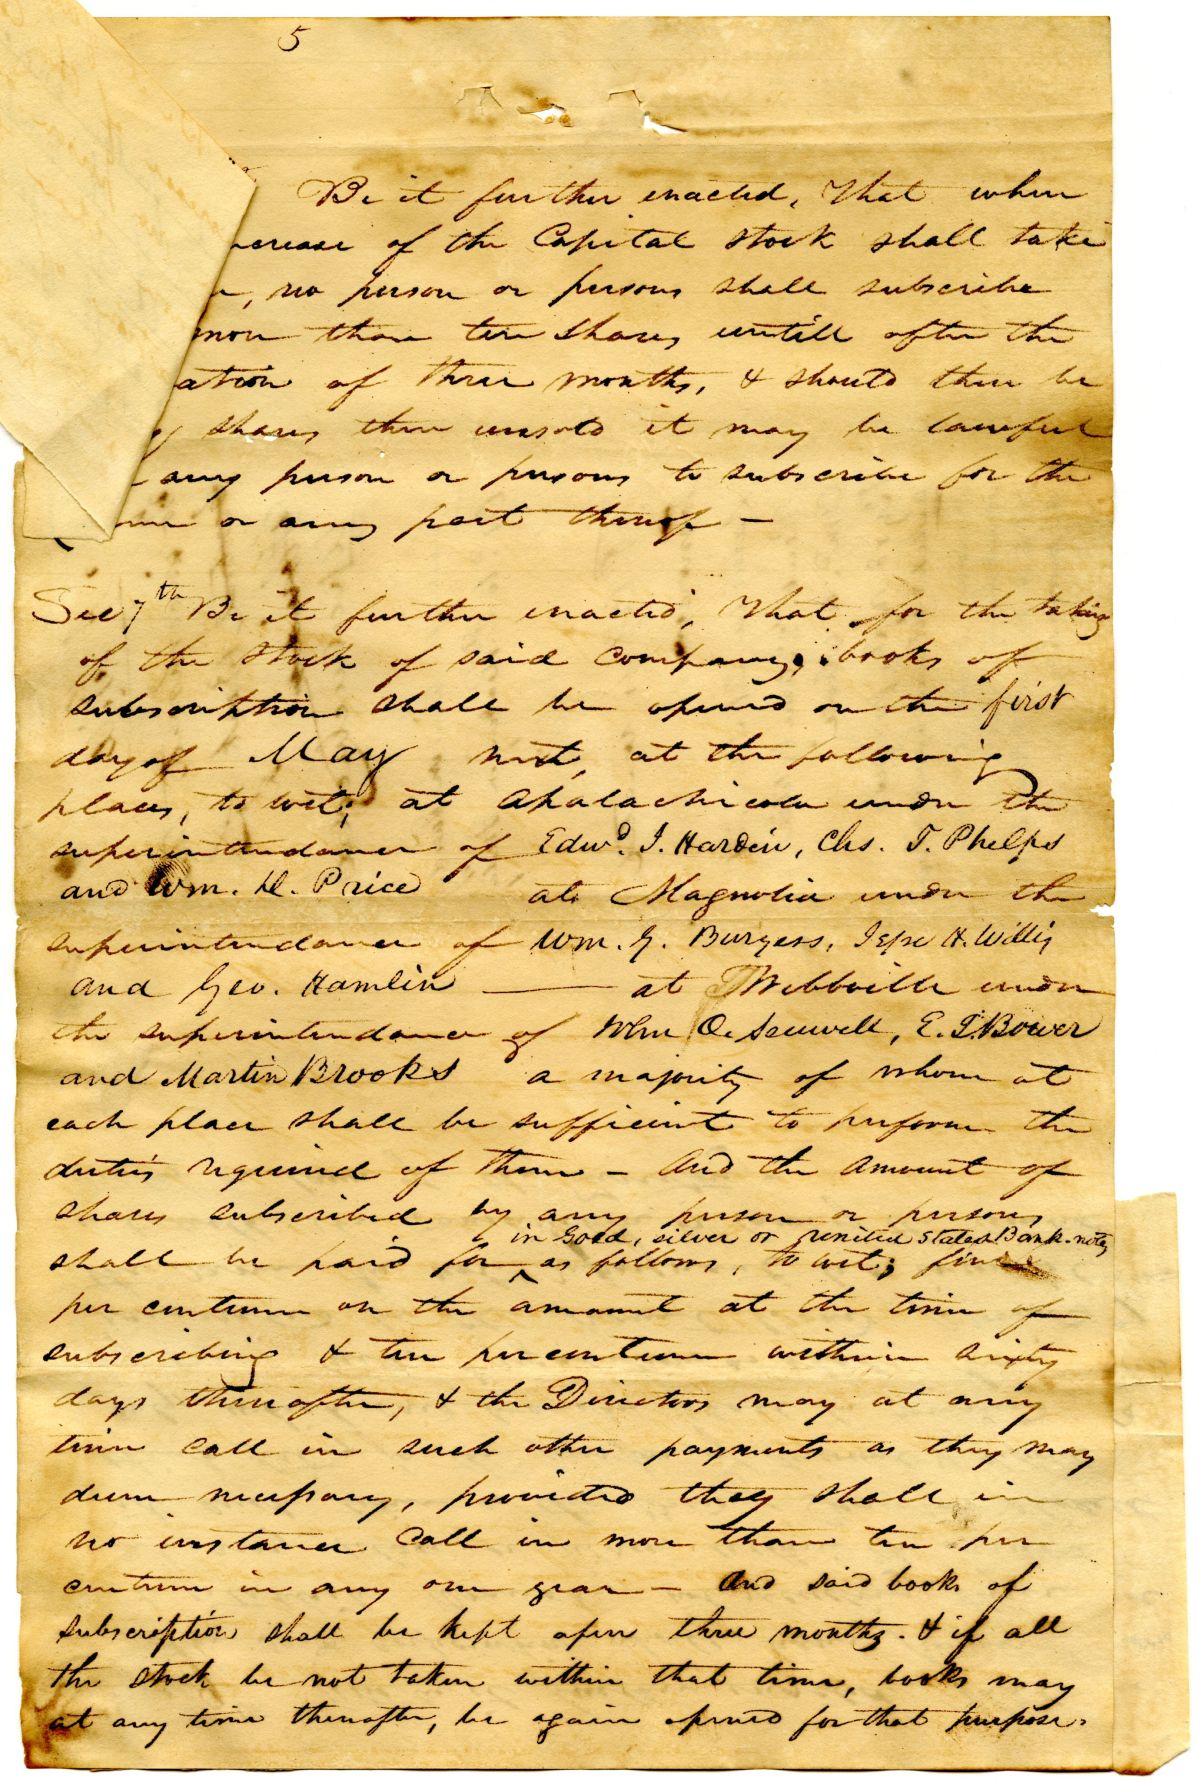 5
Be it further enacted, That when
crease of the Capital stock shall take
no person or persons shall subscribe
more than ten shares untill after the
ation of three months, & should there be
shares then unsold it may be lawful
any person or persons to subscribe for the
or any part thereof —
Sec 7th Be it further enacted, That for the taking
of the stock of said company, books of
subscription shall be opened on the first
day of May next, at the following
places, to wit; at Apalachicola under the
superintendance of Edwd. J. Hardin, Chs. T. Phelps
and Wm. H. Price at Magnolia under the
superintendance of Wm. G. Burgess, Jesse H. Willis
and Geo. Hamlin — at Webbville under
the superintendance of Wm O. Seuwell, E. T. Bower
and Martin Brooks a majority of whom at
each place shall be sufficient to perform the
duties required of them — And the amount of
shares subscribed by any person or persons
in Gold, silver or united States Bank-notes
shall be paid for ^ as follows, to wit; five
per centum on the amount at the time of
subscribing & ten per centum within sixty
days thereafter, & the Directors may at any
time call in such other payments as they may
deem necessary, provided they shall in
no instance call in more than ten per
centum in any one year — And said books of
subscription shall be kept open three months. & if all
the stock be not taken within that time, books may
at any time thereafter, be again opened for that purpose.